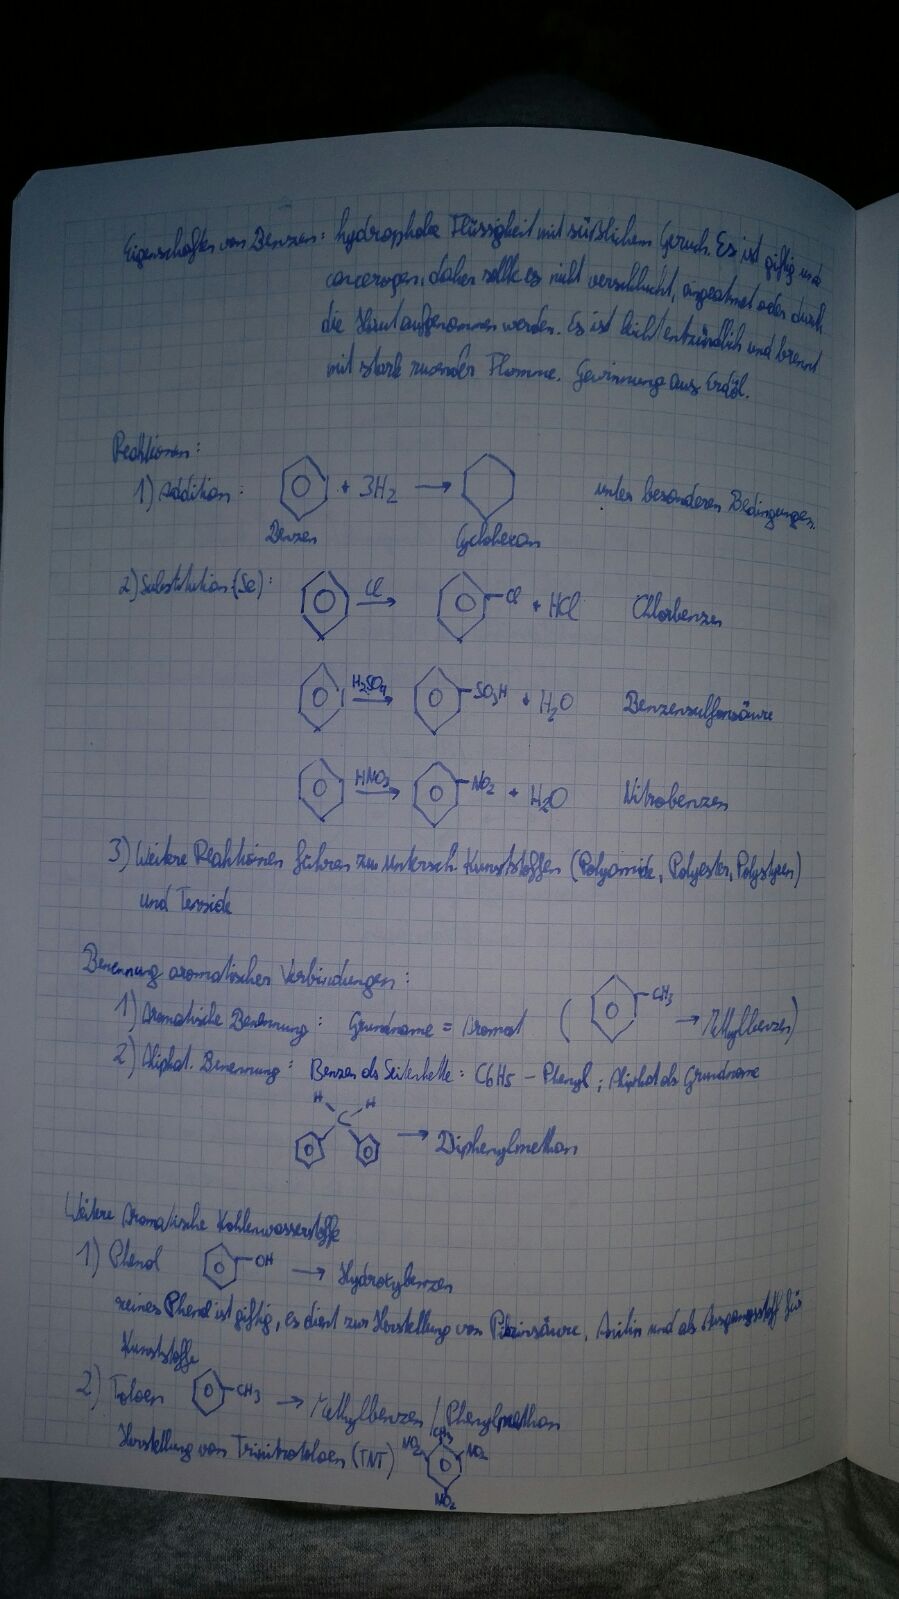 Eigenschaften von Benzen: hydrophobe Flüssigkeit mit süßlichem Geruch. Es ist giftig und
cancerogen, daher sollte es nicht verschluckt, angeatmet oder durch
die Haut aufgenommen werden. Es ist leicht entzündlich und brennt
mit stark rusender Flamme. Gewinnung aus Erdöl.
Reaktionen:
1) Addition: + 3H2 → unter besonderen Bedingungen.
Benzen Cyclohexan
2) Substitution (Se): Cl → -Cl + HCl Chlorbenzen
H2SO4 → -SO3H + H2O Benzensulfonsäure
HNO3 → -NO2 + H2O Nitrobenzen
3) Weitere Reaktionen führen zu untersch. Kunststoffen (Polyamide, Polyester, Polystyren)
und
Benennung aromatischer Verbindungen:
1) Aromatische Benennung: Grundname = Aromat ( -CH3 → Methylbenzen)
2) Aliphat. Benennung: Benzen als Seitenkette: C6H5 - Phenyl; Aliphat als Grundname
H H
C
→ Diphenylmethan
Weitere Aromatische Kohlenwasserstoffe
1) Phenol -OH → Hydroxybenzen
reines Phenol ist giftig, es dient zur Herstellung von Pikrinsäure, Anilin und als Ausgangsstoff für
Kunststoffe
2) Toluen -CH3 → Methylbenzen / Phenylmethan
Herstellung von Trinitrotoluen (TNT) NO2 CH3 NO2
NO2